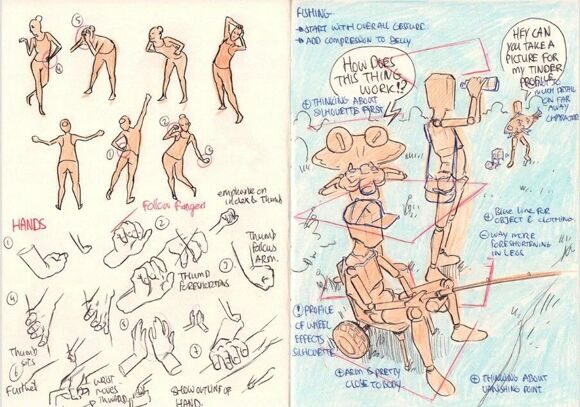 5
HANDS
Follow fingers
emphasise on
index & thumb
1
2
THUMB
FORESHORTENS
Thumb
Follows
ARM.
3
4
Thumb
Sits
Further
WRIST
MOVES
INWARD
SHOW OUTLINE OF
HAND.
FISHING
START WITH OVERALL GESTURE
ADD COMPRESSION TO BELLY
THINKING ABOUT
SILHOUETTE FIRST
HOW DOES
THIS THING
WORK!?
HEY CAN
YOU TAKE A
PICTURE FOR
MY TINDER
PROFILE
MUCH DETAIL
ON FAR
AWAY
CHARACTER
BLUE LINE FOR
OBJECT & CLOTHING
WAY MORE
FORESHORTENING
IN LEGS
PROFILE
OF WHEEL
EFFECTS
SILHOUETTE
ARM IS PRETTY
CLOSE TO BODY
THINKING ABOUT
VANISHING POINT.